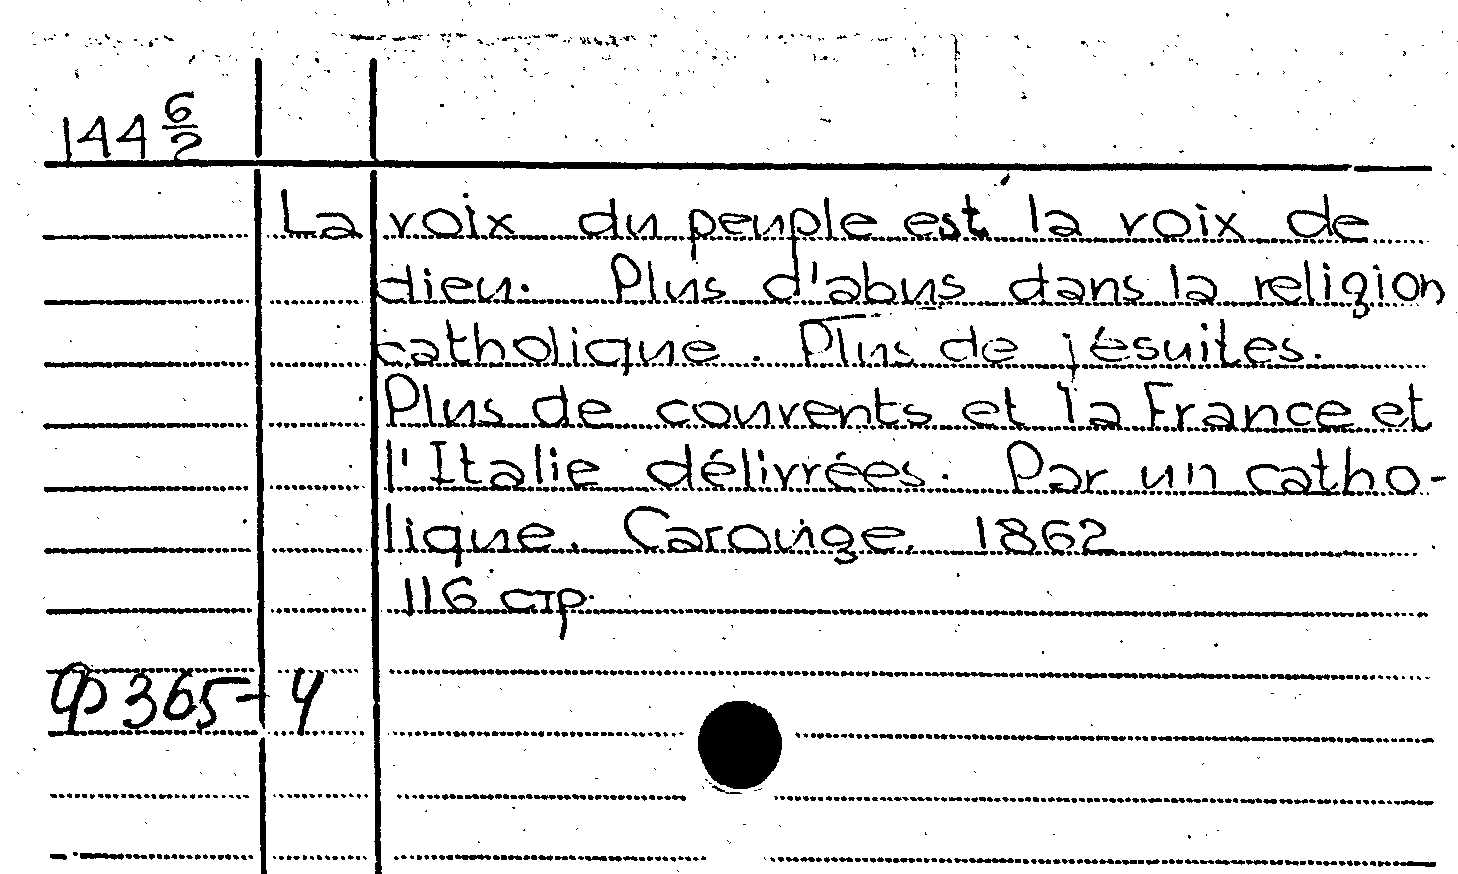 144 6/2
La voix du peuple est la voix de
dieu. Plus d'abus dans la religion
catholique. Plus de jésuites.
Plus de couvents et la France et
l'Italie délivrées. Par un catho-
lique. Carouge. 1862
116 стр.
Ф 365-4